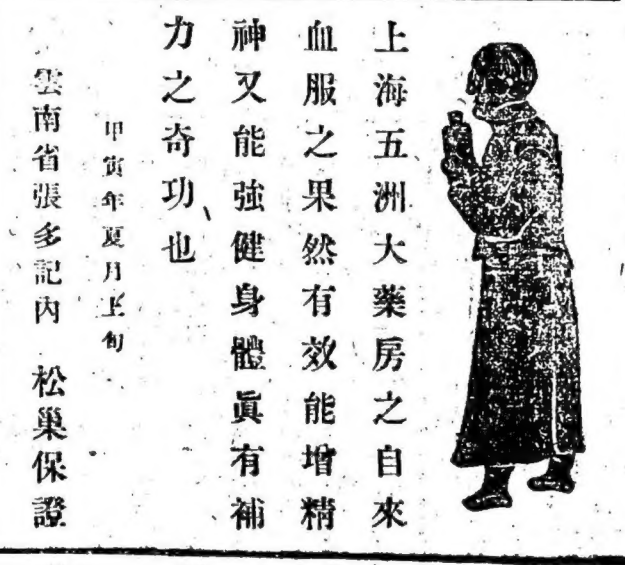 上海五洲大藥房之自來
血服之果然有效能增精
神又能強健身體眞有補
力之奇功也
甲寅年夏月上旬
雲南省張多記內 松巢保證